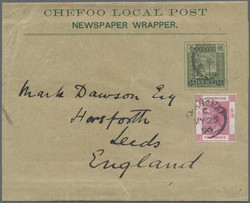 CHEFOO LOCAL POST
NEWSPAPER WRAPPER.
Mark Dawson Esq
Horsforth
Leeds
England